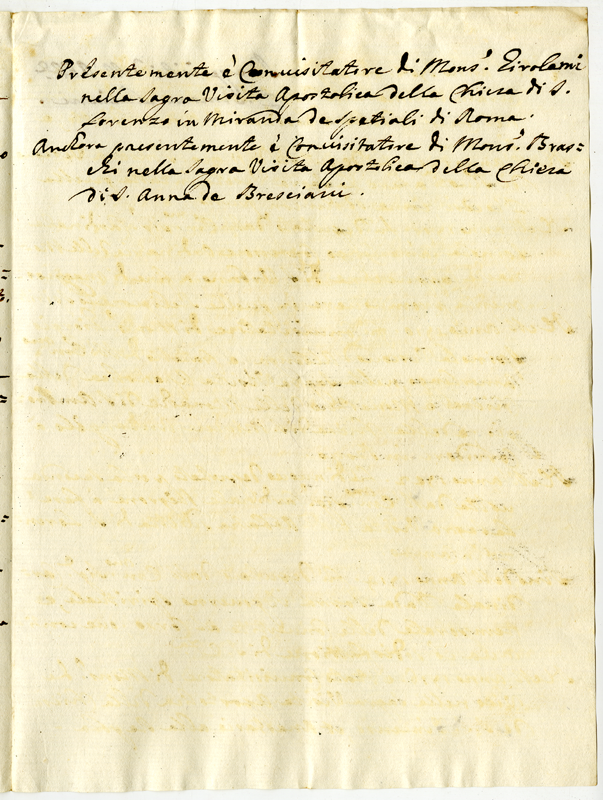 Presentemente è Convisitatore di Mons.r Girolami
nella Sagra Visita Apostolica della Chiesa di S.
Lorenzo in Miranda de Spetiali di Roma.
Anchora presentemente è Convisitatore di Mons.r Bras=
chi nella Sagra Visita Apostolica della Chiesa
di S. Anna de Bresciani.